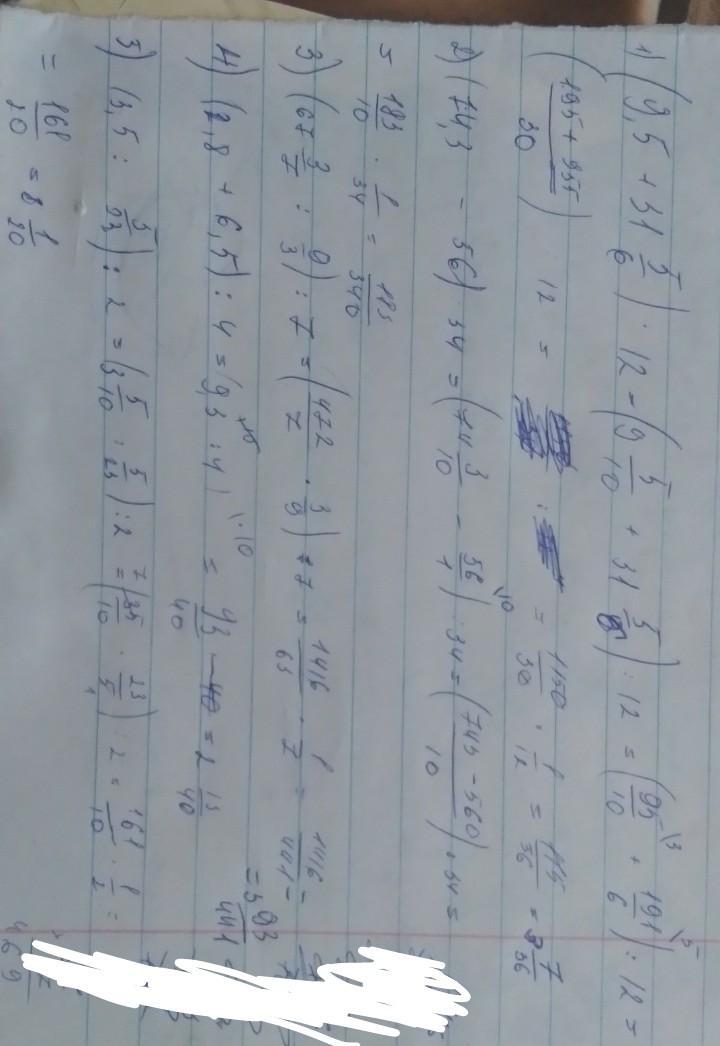 1) (9,5 + 31 5/6) : 12 = (9 5/10 + 31 5/6) : 12 = (95/10 \3 + 191/6 \5) : 12 =
(195 + 955/30) : 12 = = 1150/30 · 1/12 = 115/36 = 3 7/36
2) (74,3 - 56) · 34 = (74 3/10 - 56/1 \10) · 34 = (743 - 560/10) · 34 =
= 183/10 · 1/34 = 183/340
3) (67 3/7 : 9/3) : 7 = (472/7 · 3/9) : 7 = 1416/63 · 1/7 = 1416/441 =
= 3 93/441
4) (2,8 + 6,5) : 4 = (9,3 : 4) \·10 = 93/40 = 2 13/40
5) (3,5 : 5/23) : 2 = (3 5/10 : 5/23) : 2 = (35/10 · 23/5) : 2 = 161/10 · 1/2 =
= 161/20 = 8 1/20